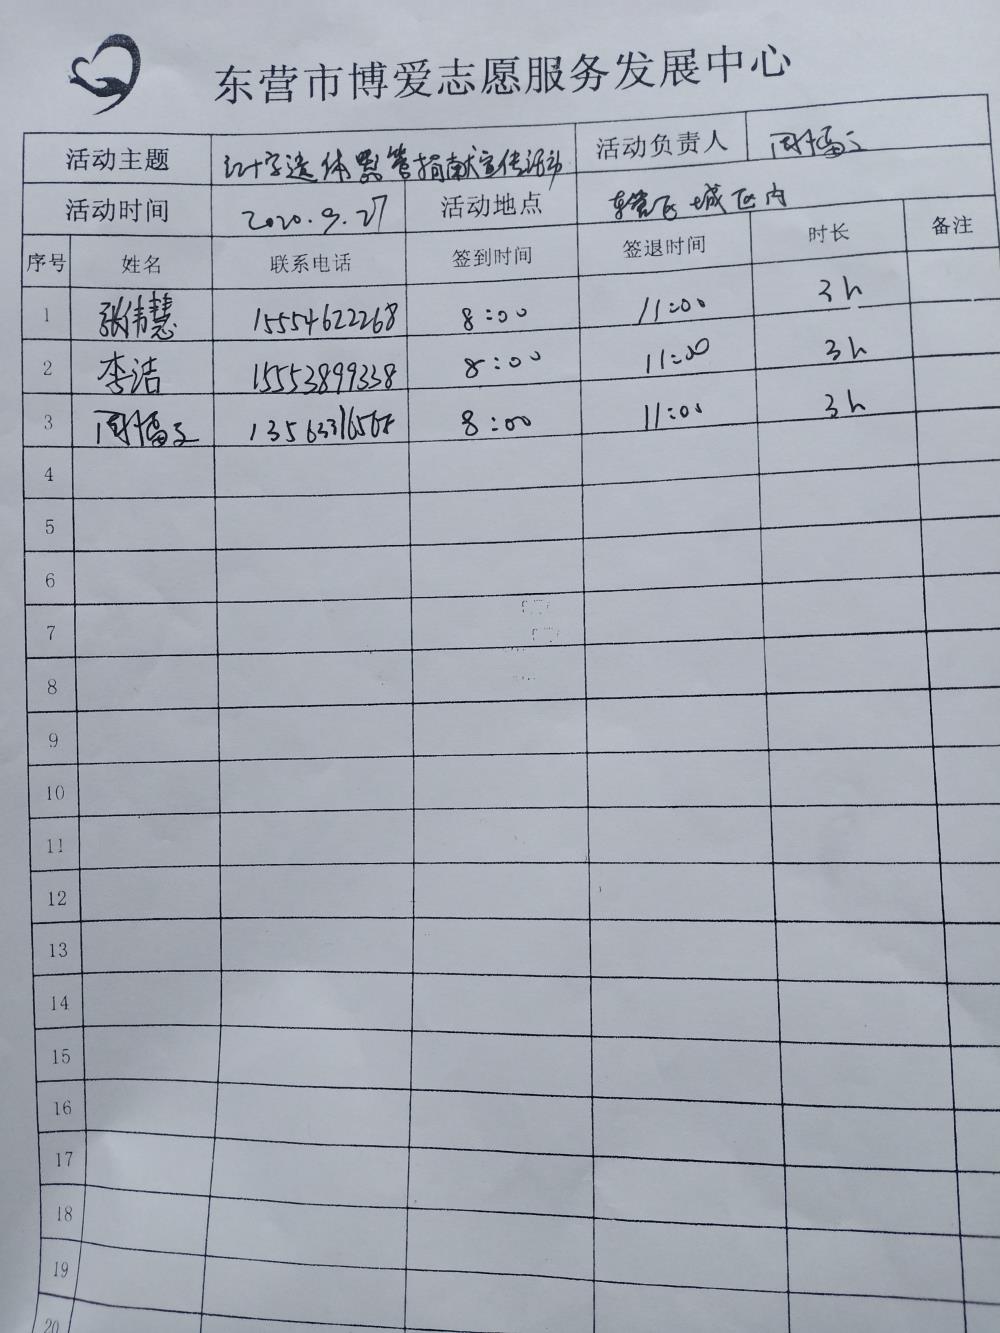 东营市博爱志愿服务发展中心
活动主题 红十字遗体器官捐献宣传活动 活动负责人
活动时间 2020.9.27 活动地点 城区内
序号 姓名 联系电话 签到时间 签退时间 时长 备注
1 张伟慧 15554622268 8:00 11:00 3h
2 李洁 15553899338 8:00 11:00 3h
3 8:00 11:00 3h
4
5
6
7
8
9
10
11
12
13
14
15
16
17
18
19
20